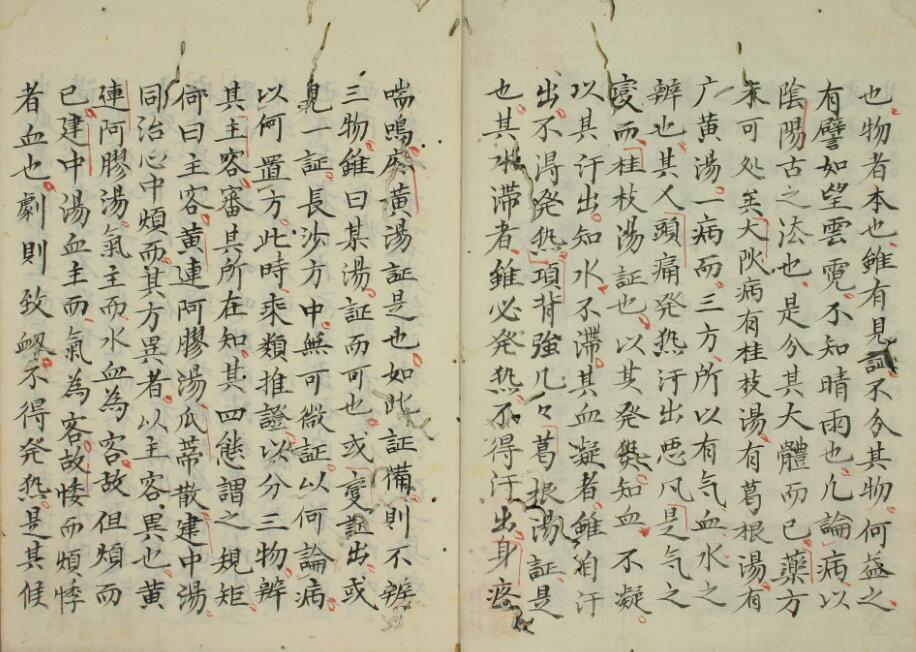 也物者本也雖有見証不分其物何益之
有譬如望雲霓不知晴雨也凡論病以
陰陽古之法也是分其大體而已藥方
未可処矣大陽病有桂枝湯有葛根湯有
广黄湯一病而三方所以有气血水之
辨也其人頭痛発热汗出悪风是气之
変而桂枝湯証也以其発热知血不凝
以其汗出知水不滞其血凝者雖自汗
出不得発热項背強几々葛根湯証是
也其水滞者雖必発热不得汗出身疼
喘鳴麻黄湯証是也如此証備則不辨
三物雖曰某湯証而可也或変証出或
見一証長沙方中無可徴証以何論病
以何置方此時乘類推證以分三物辨
其主客審其所在知其四態謂之規矩
何曰主客黄連阿膠湯瓜蒂散建中湯
同治心中煩而其方異者以主客異也黄
連阿膠湯氣主而水血為客故但煩而
已建中湯血主而氣為客故悸而煩悸
者血也劇則致衂不得発热是其候